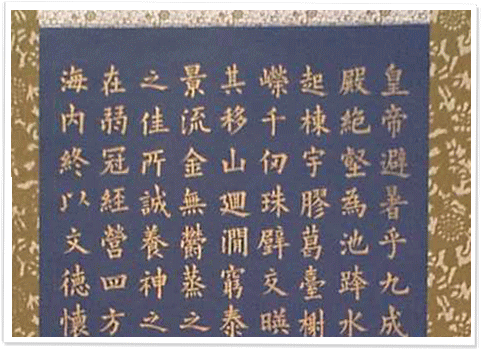 皇帝避暑乎九成
殿絶壑為池跨水
起棟宇膠葛臺榭
嶸千仞珠璧交暎
其移山廻澗窮泰
景流金無欝蒸之
之佳所誠養神之
在弱冠經營四方
海内終以文德懷